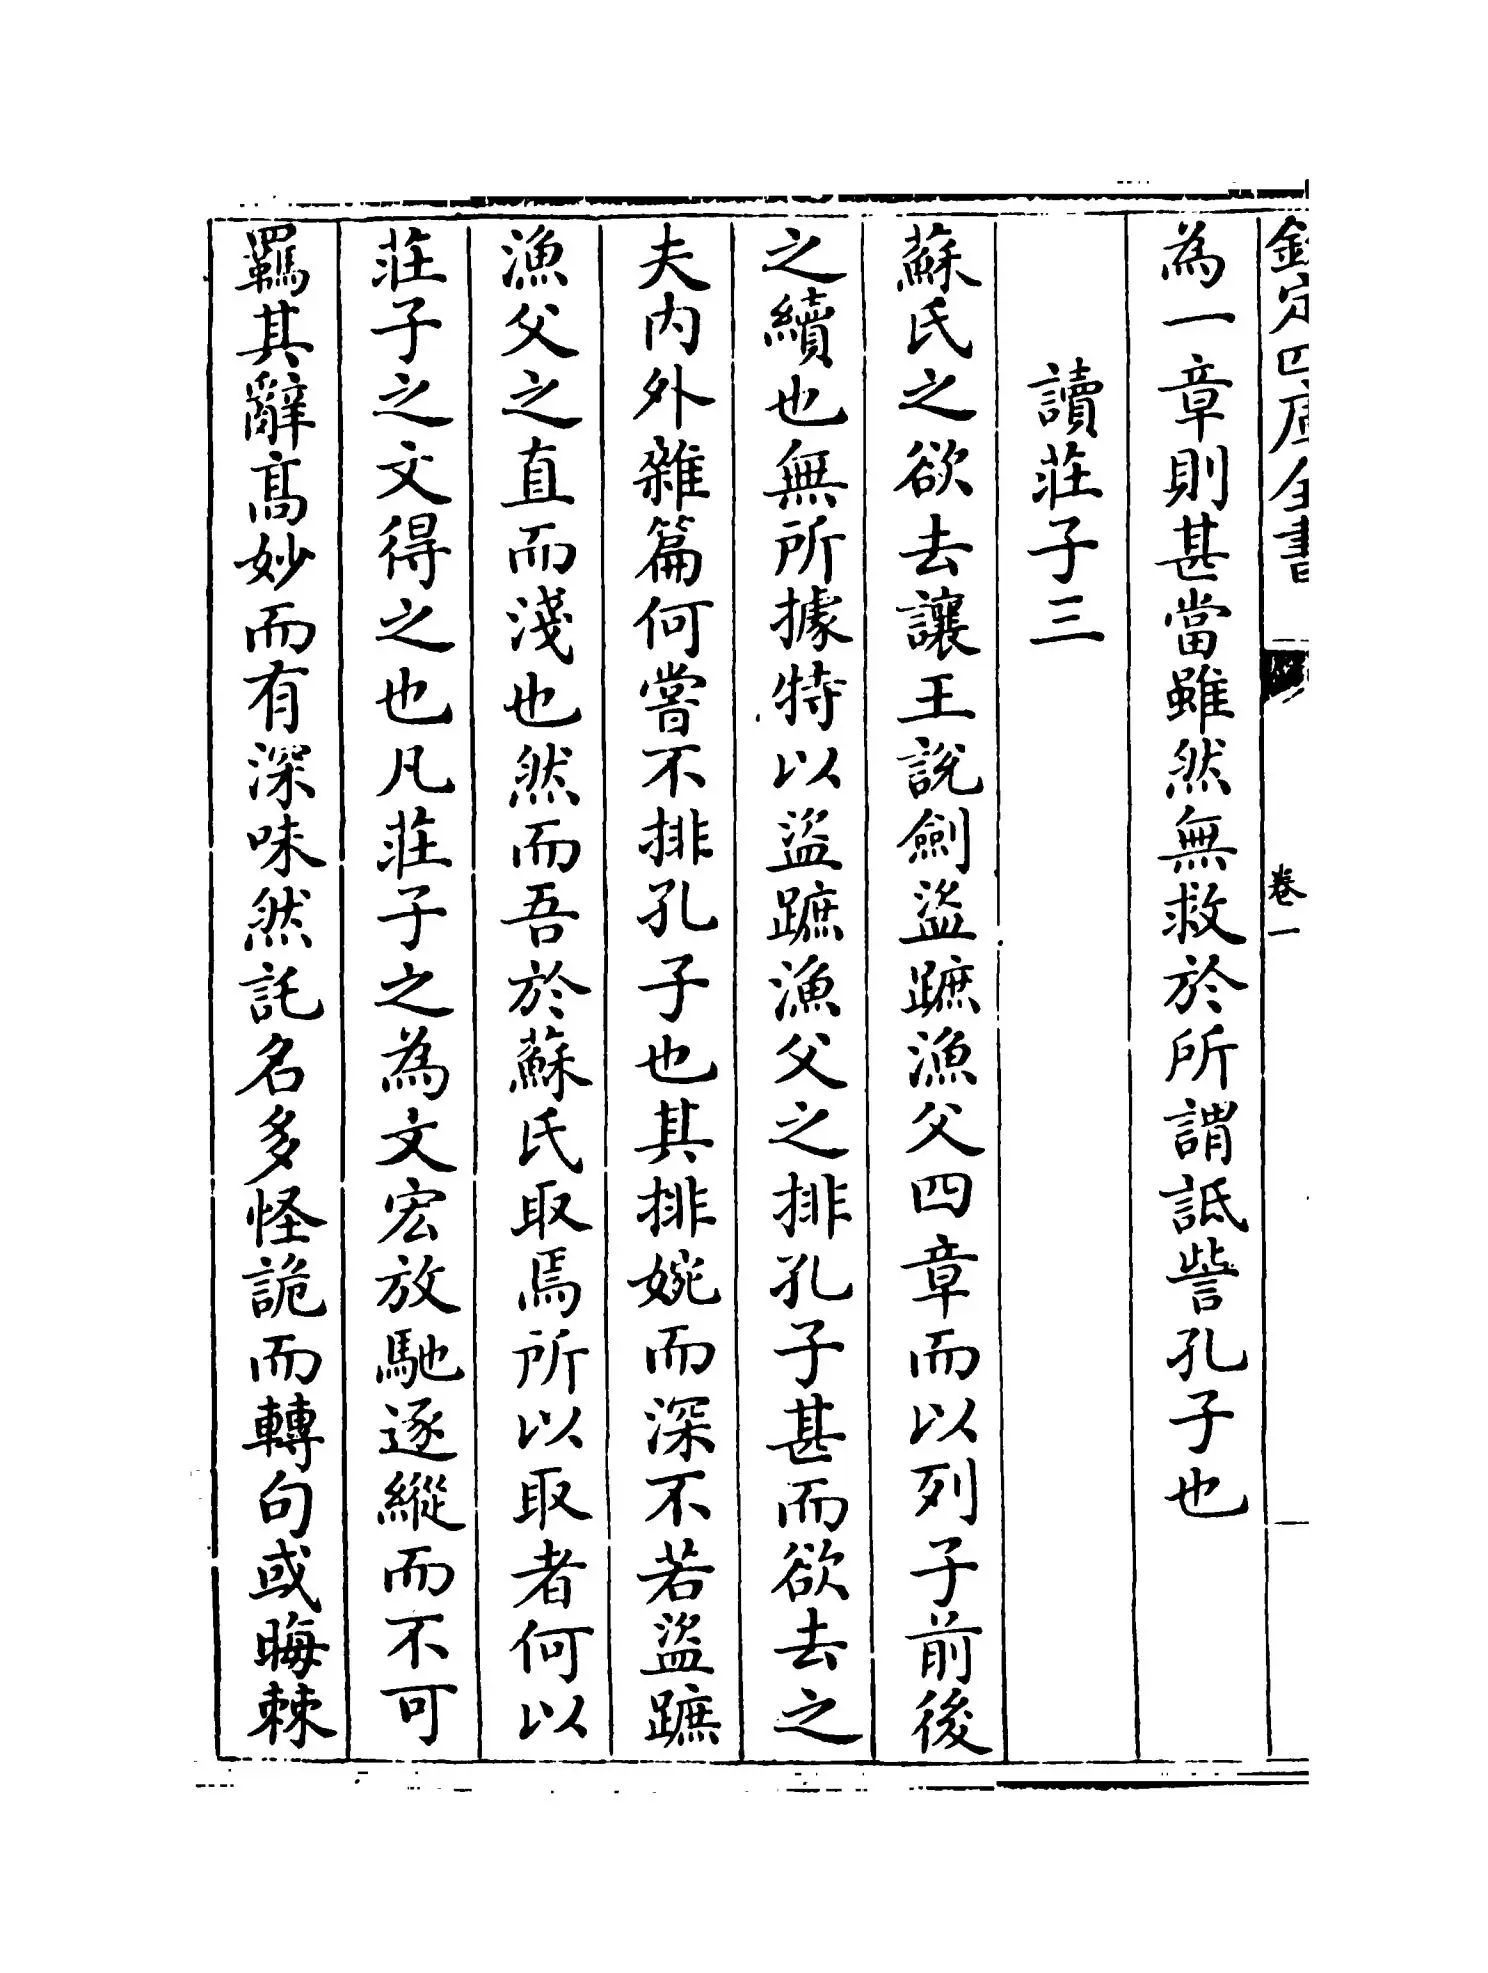 欽定四庫全書
卷一
為一章則甚當雖然無救於所謂詆訾孔子也
讀莊子三
蘇氏之欲去讓王說劍盜蹠漁父四章而以列子前後
之續也無所據特以盜蹠漁父之排孔子甚而欲去之
夫內外雜篇何嘗不排孔子也其排婉而深不若盜蹠
漁父之直而淺也然而吾於蘇氏取焉所以取者何以
莊子之文得之也凡莊子之為文宏放馳逐縱而不可
羈其辭高妙而有深味然託名多怪詭而轉句或晦棘